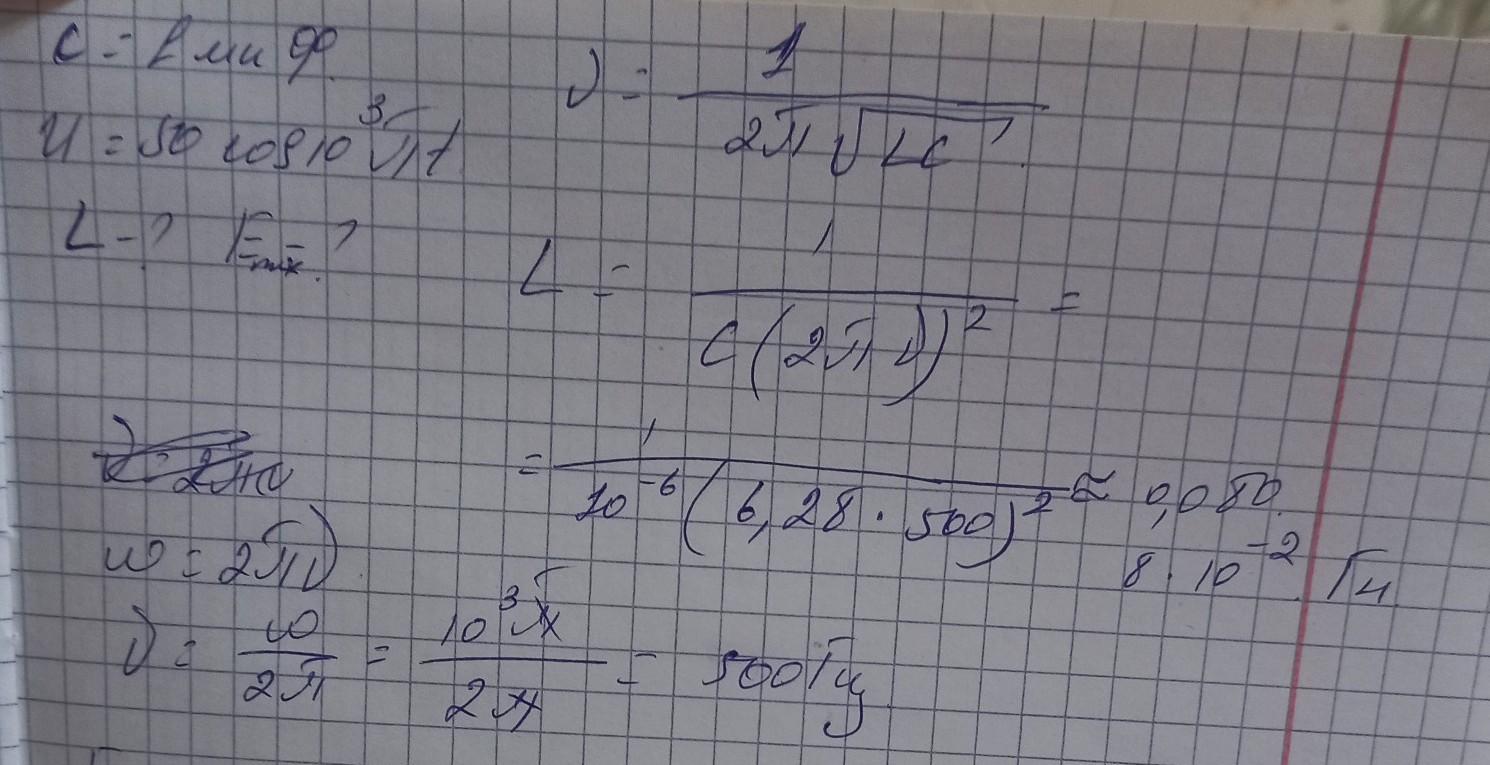 C = 1 мк Ф.
U = 50 cos 10³πt
L - ? Emax. ?
ν = 1 / 2π√LC.
L = 1 / C(2πν)² =
= 1 / 10⁻⁶(6,28 · 500)² ≈ 0,080.
8 · 10⁻² Гн
ω = 2πν
ν = ω / 2π = 10³π / 2π = 500 Гц